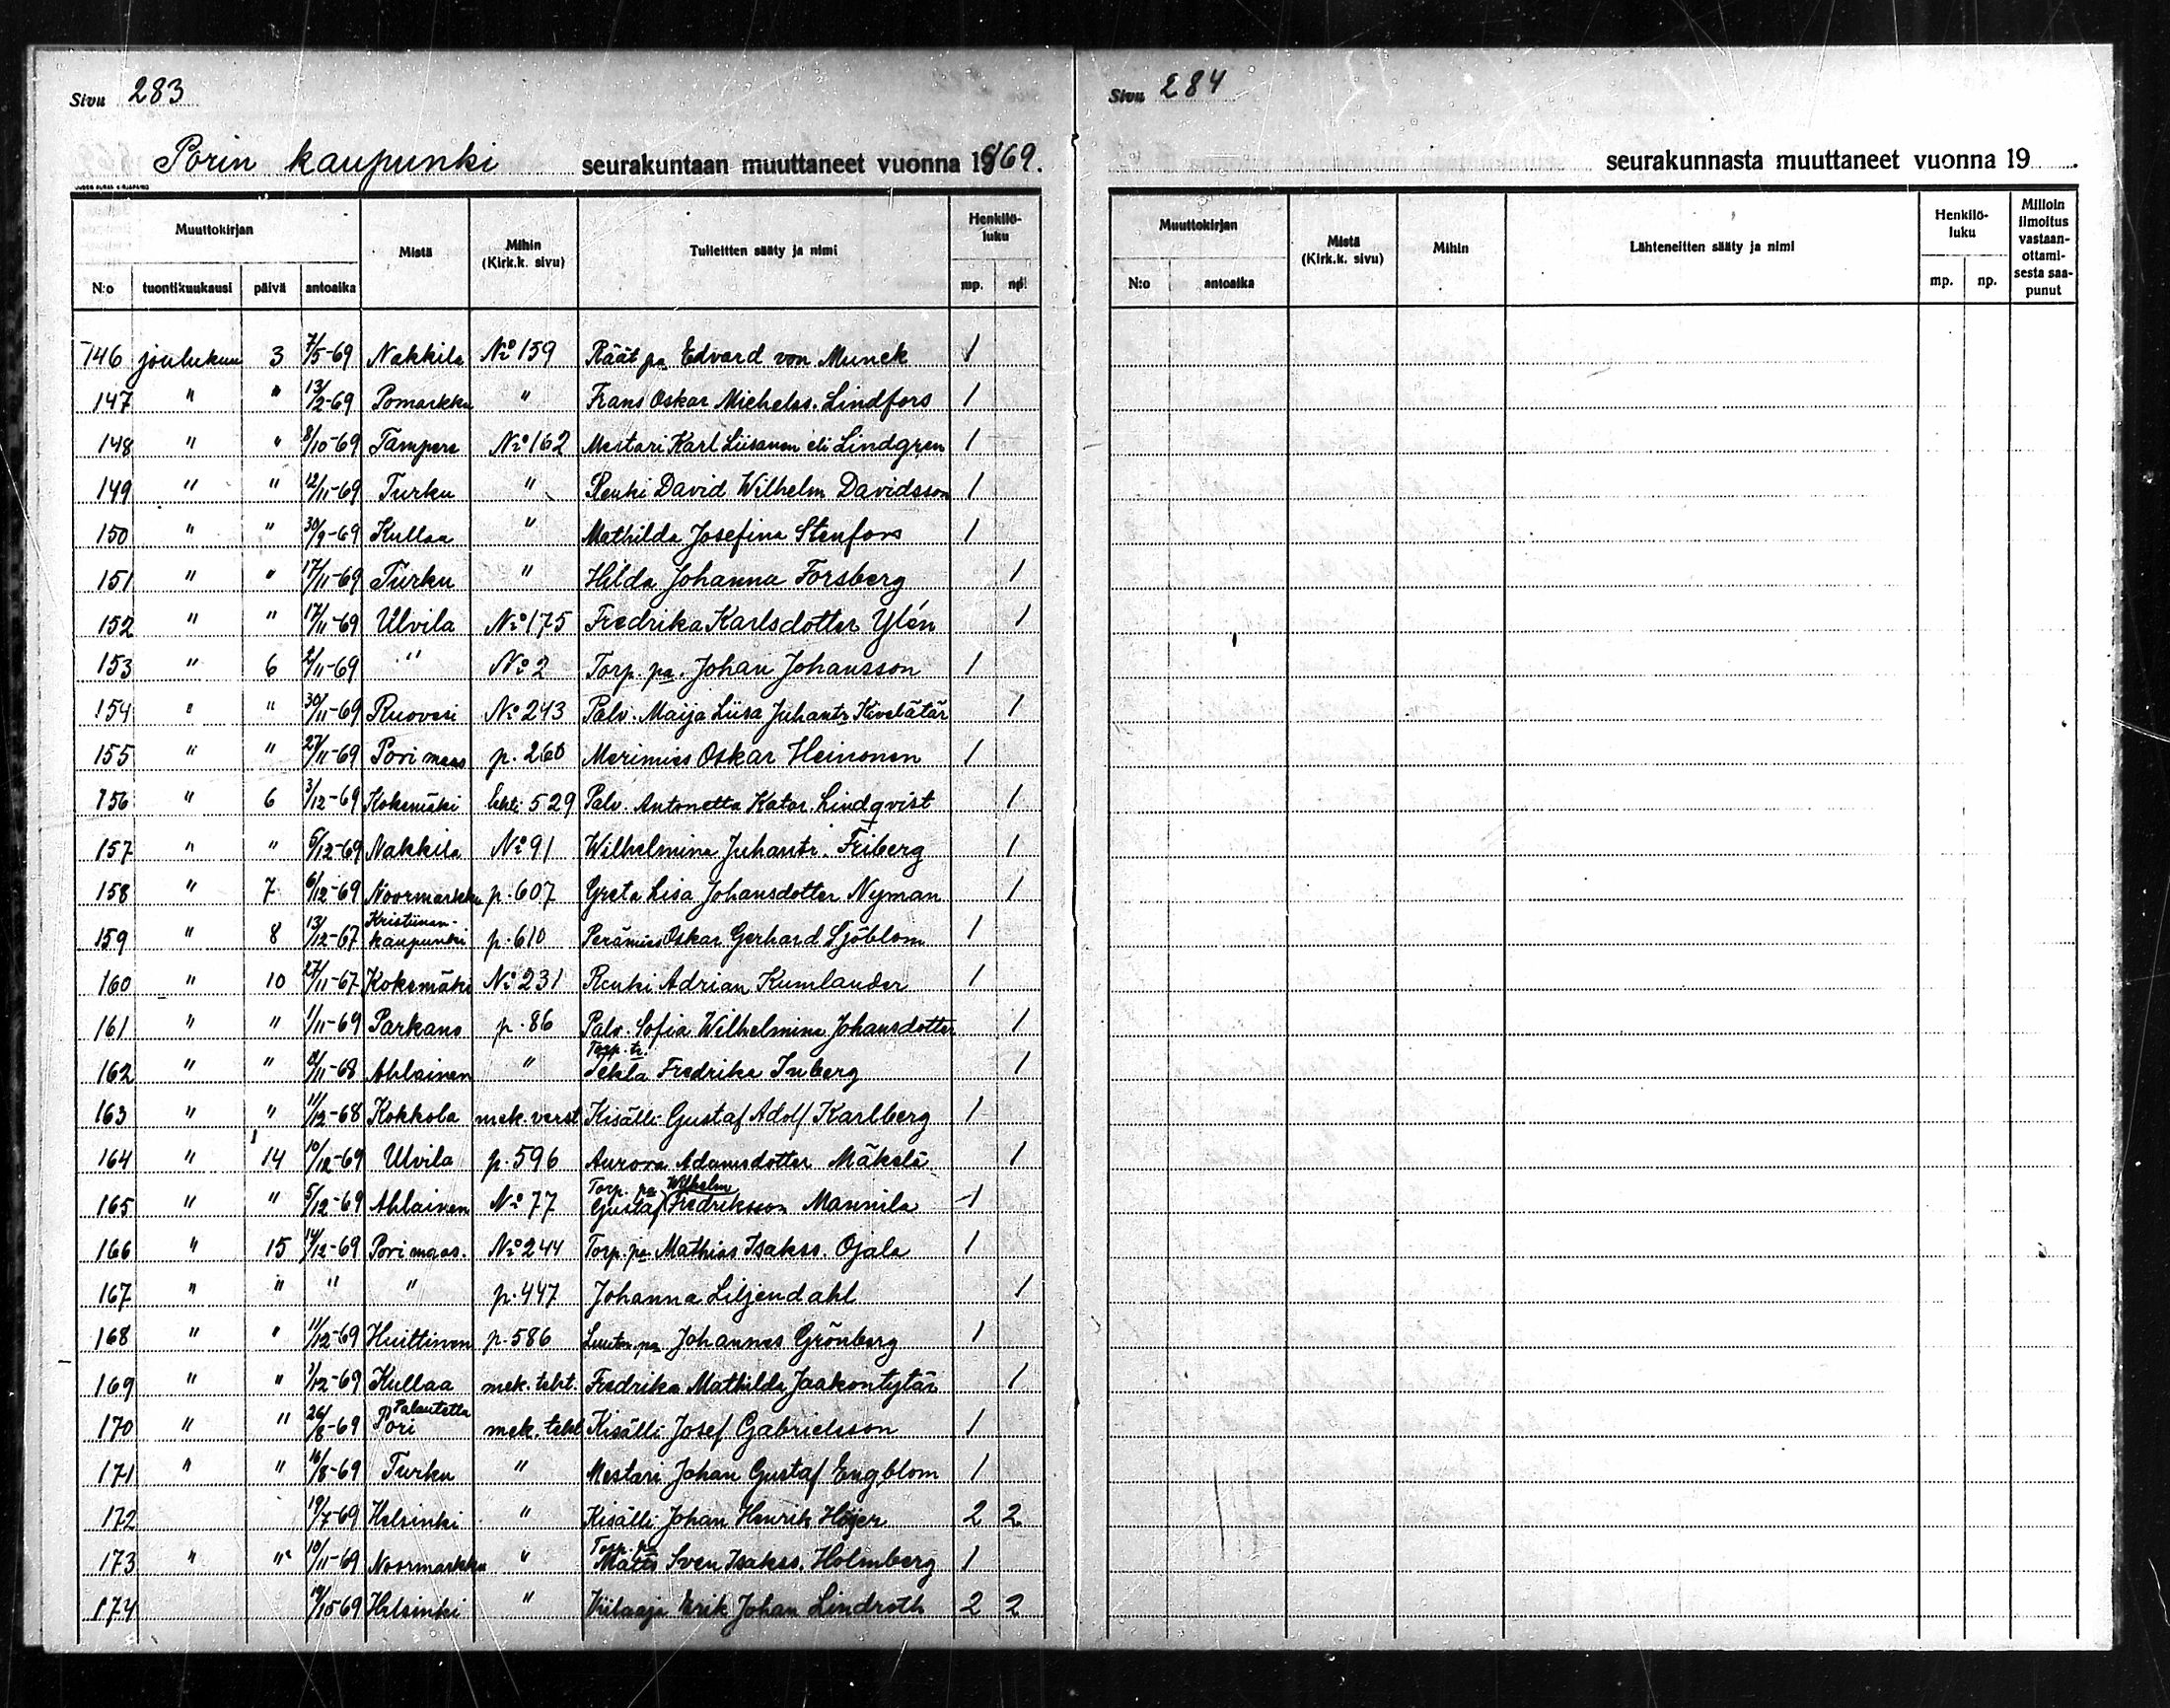 Sivu 283
Porin kaupunki seurakuntaan muuttaneet vuonna 1869.
Muuttokirjan
Mistä
Mihin
(Kirk.k. sivu)
Tulleitten sääty ja nimi
Henkilö-
luku
N:o tuontikuukausi päivä antoaika mp. np.
146 joulukuu 3 7/5-69 Nakkila No 159 Räät pa Edvard von Munck 1
147 " " 13/2-69 Pomarkku " Frans Oskar Michelss. Lindfors 1
148 " " 8/10-69 Tampere No 162 Mestari Karl Liisanen eli Lindgren 1
149 " " 12/11-69 Turku " Renki David Wilhelm Davidsson 1
150 " " 30/9-69 Kullaa " Mathilda Josefina Stenfors 1
151 " " 17/11-69 Turku " Hilda Johanna Forsberg 1
152 " " 17/11-69 Ulvila No 175 Fredrika Karlsdotter Ylén 1
153 " 6 2/11-69 " No 2 Torp. pa. Johan Johansson 1
154 " " 30/11-69 Ruovesi No 243 Palv. Maija Liisa Juhantr 1
155 " " 27/11-69 Pori maas p. 260 Merimies Oskar Heinonen 1
156 " 6 3/12-69 Kokemäki 529 Palv. Antonetta Katar. Lindqvist 1
157 " " 5/12-69 Nakkila No 91 Wilhelmina Juhantr. Friberg 1
158 " 7 6/12-69 Noormarkku p. 607 Greta Lisa Johansdotter Nyman 1
159 " 8 13/12-67 Kristiinan-
kaupunki p. 610 Perämies Oskar Gerhard Sjöblom 1
160 " 10 27/11-67 Kokemäki No 231 Renki Adrian Kumlander 1
161 " " 1/11-69 Parkano p. 86 Palv. Sofia Wilhelmina Johansdotter 1
Torp. tr.
162 " " 8/11-68 Ahlainen " Tekla Fredrika Inberg 1
163 " " 11/12-68 Kokkola mek. verst Kisälli Gustaf Adolf Karlberg 1
164 " 14 10/12-69 Ulvila p. 596 Aurora Adamsdotter Mäkelä 1
Torp. pa Wilhelm
165 " " 5/12-69 Ahlainen No 77 Gustaf Fredriksson Mannila 1
166 " 15 14/12-69 Pori maas. No 244 Torp. pa Mathias Isakss. Ojala 1
167 " " " " p. 447 Johanna Liljendahl 1
168 " " 11/12-69 Huittinen p. 586 Johannes Grönberg 1
169 " " 3/12-69 Kullaa mek. teht. Fredrika Mathilda Jaakontytär 1
Palautettu
170 " " 26/8-69 Pori mek. teht Kisälli Josef Gabrielsson 1
171 " " 16/8-69 Turku " Mestari Johan Gustaf Engblom 1
172 19/7-69 Helsinki " Kisälli Johan Henrik Höijer 2 2
Torp. pa
173 " " 10/11-69 Noormarkku " Matts Sven Isakss. Holmberg 1
174 19/10 69 Helsinki " Viilaaja Erik Johan Lindroth 2 2
Sivu 284
seurakunnasta muuttaneet vuonna 19 .
Muuttokirjan
Mistä
(Kirk.k. sivu)
Mihin
Lähteneitten sääty ja nimi
Henkilö-
luku
Milloin
ilmoitus
vastaan-
ottami-
sesta saa-
punut
N:o antoaika mp. np.